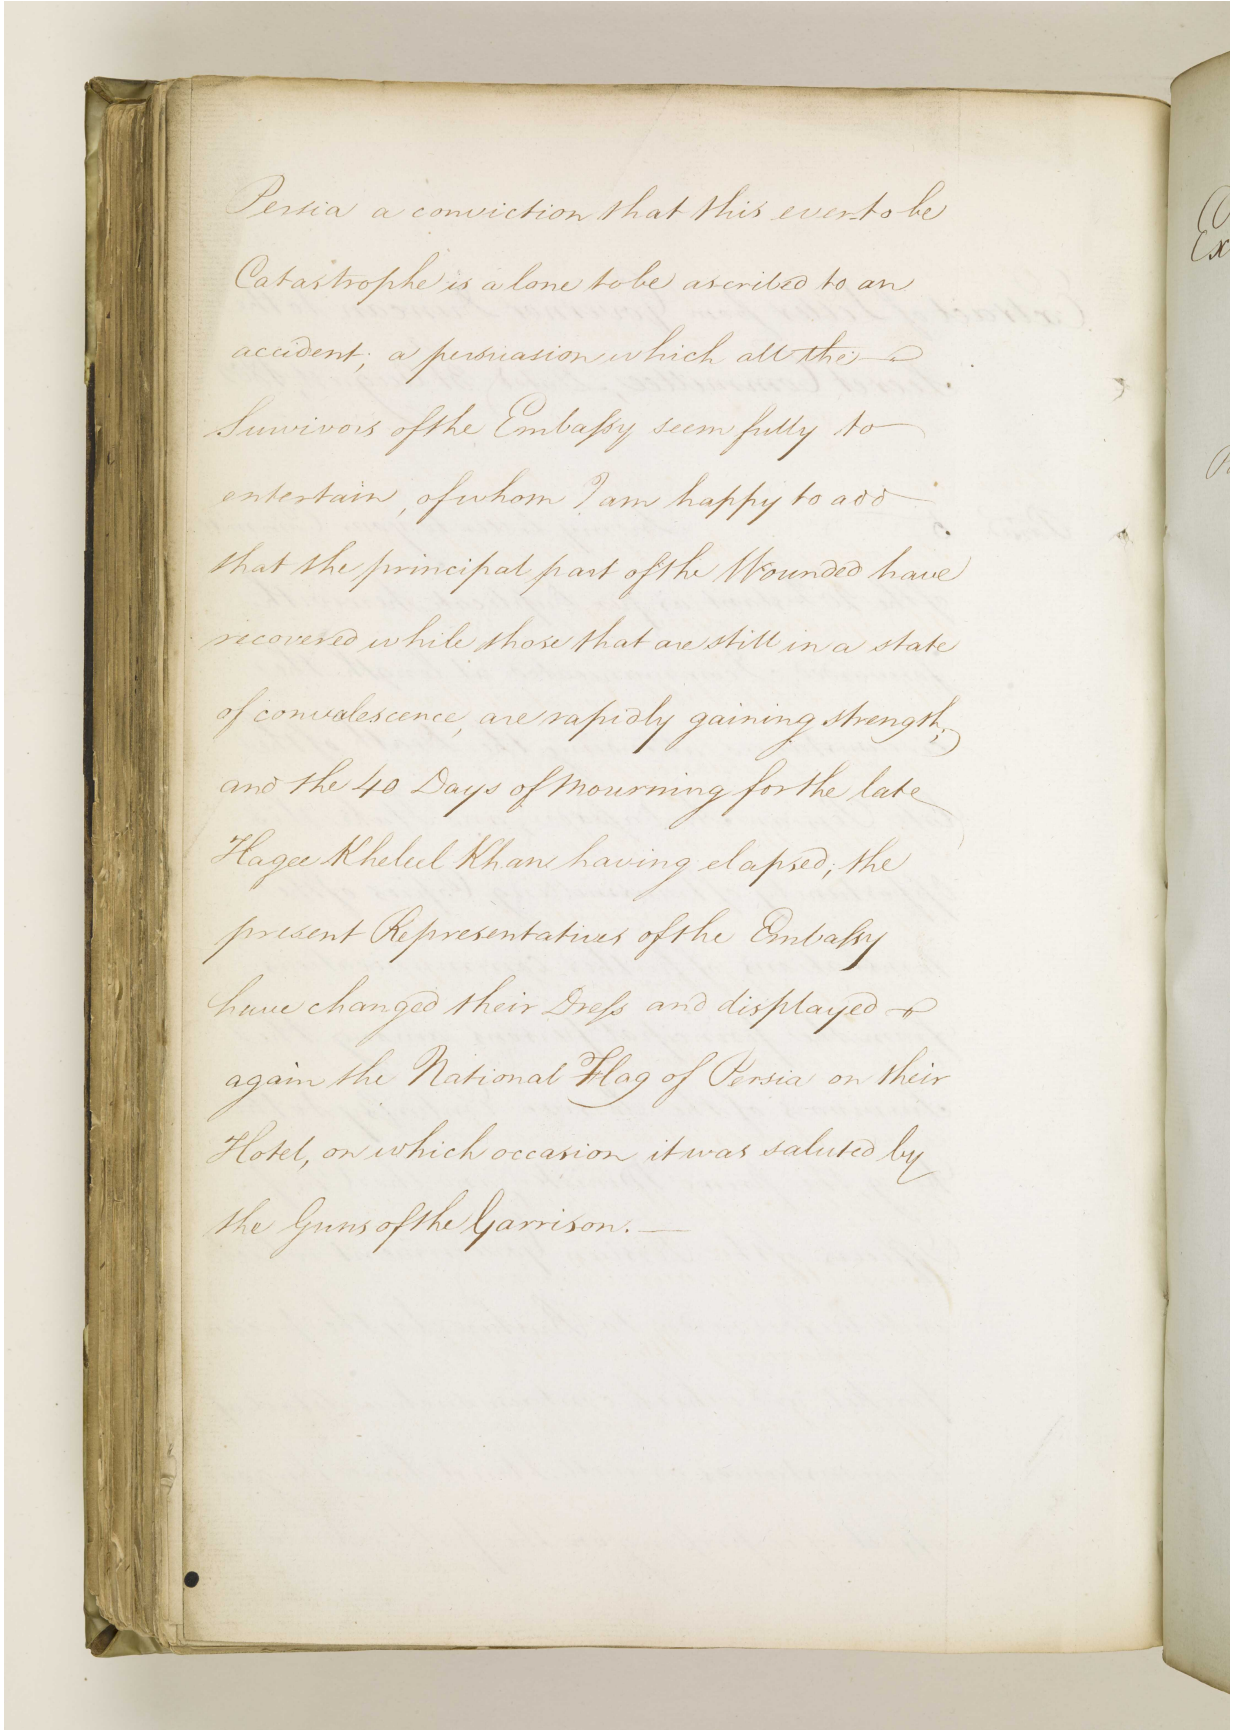 Persia a conviction that this ever to be
Catastrophe is alone to be ascribed to an
accident; a persuasion which all the
Survivors of the Embassy seem fully to
entertain, of whom I am happy to add
that the principal part of the Wounded have
recovered while those that are still in a state
of convalescence, are rapidly gaining strength;
and the 40 Days of Mourning for the late
Hagee Kheleel Khan having elapsed; the
present Representatives of the Embassy
have changed their Dress and displayed
again the National Flag of Persia on their
Hotel, on which occasion it was saluted by
the Guns of the Garrison. —